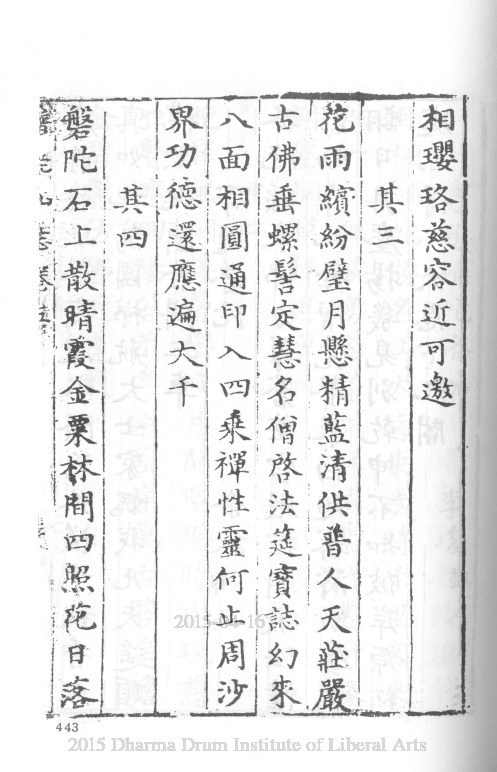 相瓔珞慈容近可邀
其三
花雨繽紛璧月懸精藍清供普人天莊嚴
古佛垂螺髻定慧名僧啓法筵寶誌幻來
八面相圓通印入四乘禪性靈何止周沙
界功德還應遍大千
其四
磐陀石上散晴霞金粟林間四照花日落
443
2015-04-16
2015 Dharma Drum Institute of Liberal Arts